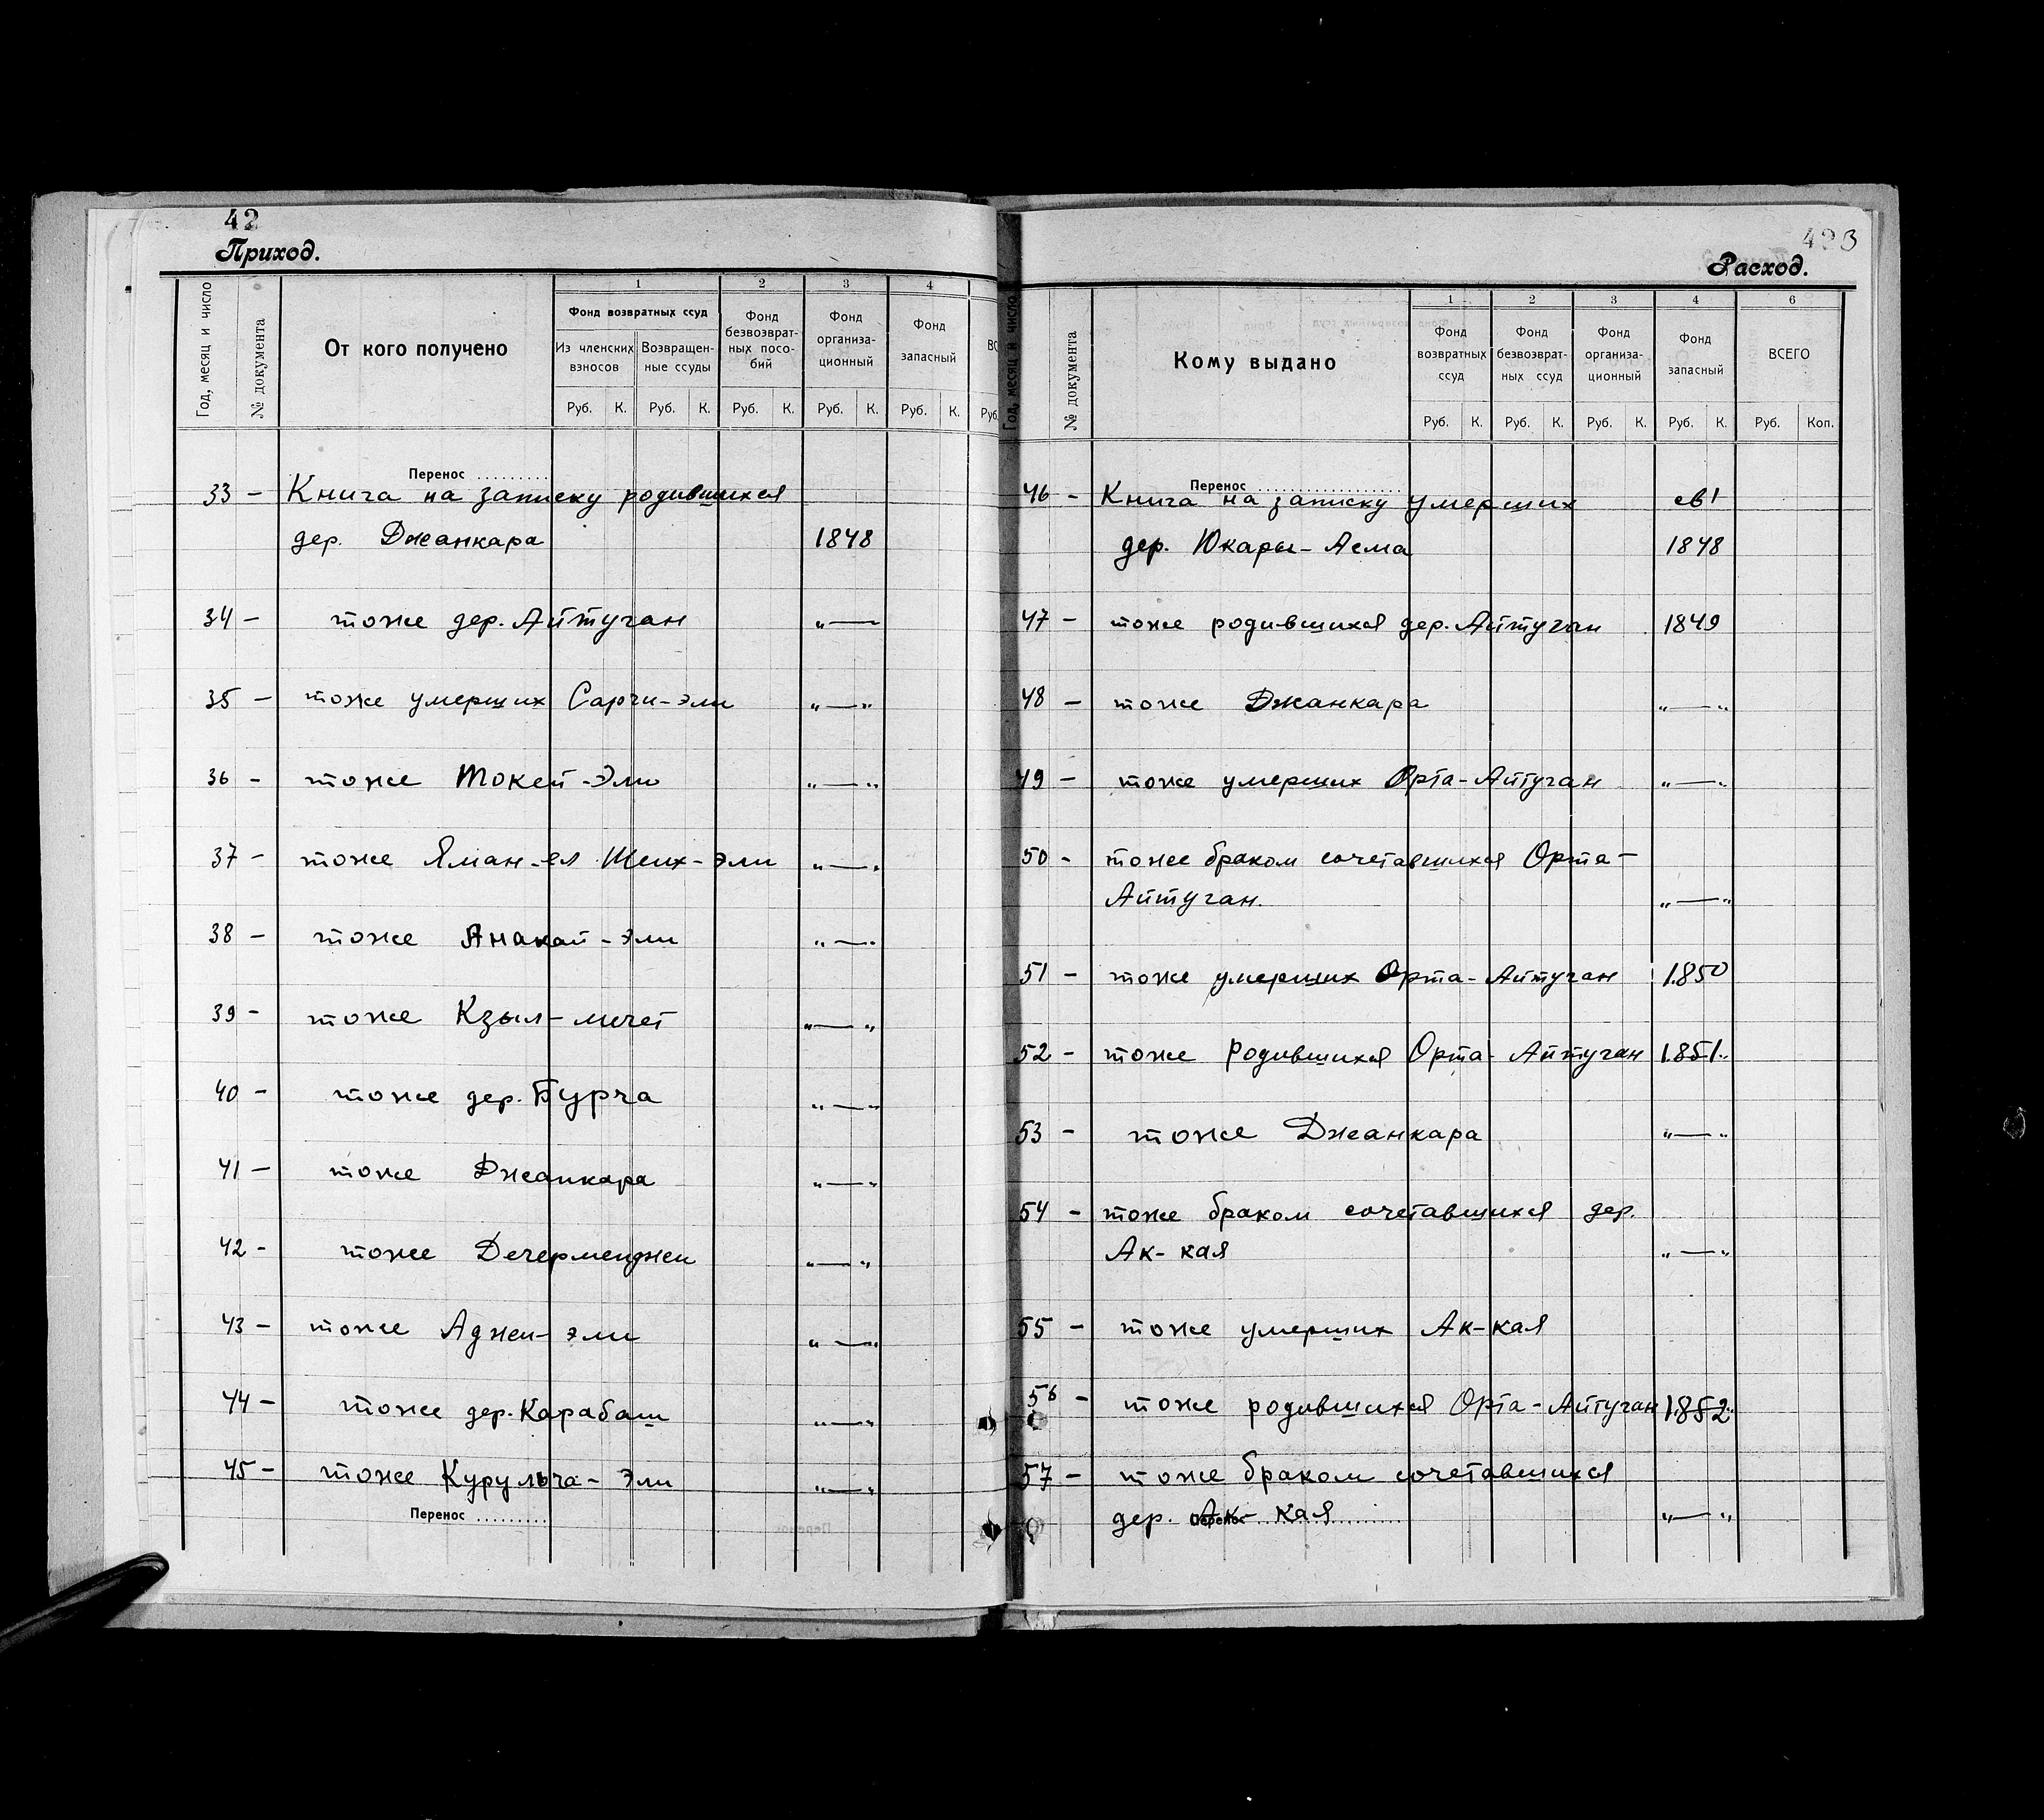 42
Приход.
Год, месяц и число
№ документа
От кого получено
1
Фонд возвратных ссуд
Из членских взносов
Возвращен-
ные ссуды
2
Фонд
безвозврат-
ных посо-
бий
3
Фонд
организа-
ционный
4
Фонд
запасный
Руб. К. Руб. К. Руб. К. Руб. К. Руб. К. Руб.
Перенос
33 - Книга на записку родившихся
дер. Джанкара 1848
34 - тоже дер. Айтуган „—
35 - тоже умерших Сарчи-эли „—„
36 - тоже Токей-Эли „—„
37 - тоже Яман-ел Шеих-эли „—„
38 - тоже Анакай-эли „—„
39 - тоже Кзыл-мечет „—„
40 - тоже дер. Бурча „—„
41 - тоже Джанкара „—„
42 - тоже Дечерменджи „—„
43 - тоже Аджи-эли „—„
44 - тоже дер. Карабаш „—„
45 - тоже Курульча-эли „—„
Перенос
Расход.
Год, месяц и число
№ документа
Кому выдано
1
Фонд
возвратных
ссуд
2
Фонд
безвозврат-
ных ссуд
3
Фонд
организа-
ционный
4
Фонд
запасный
6
ВСЕГО
Руб. К. Руб. К. Руб. К. Руб. К. Руб. Коп.
Перенос
46 - Книга на записку умерших
дер. Юкары-Асма 1848
47 - тоже родившихся дер. Айтуган 1849
48 - тоже Джанкара „—„
49 - тоже умерших Орта-Айтуган „—„
50 - тоже браком сочетавшихся Орта-
Айтуган. „—„
51 - тоже умерших Орта-Айтуган 1850
52 - тоже родившихся Орта-Айтуган 1851.
53 - тоже Джанкара „—„
54 - тоже браком сочетавшихся дер.
Ак-кая „—„
55 - тоже умерших Ак-кая
56 - тоже родившихся Орта-Айтуган 1852.
57 - тоже браком сочетавшихся
дер. Ак-кая „—„
Перенос